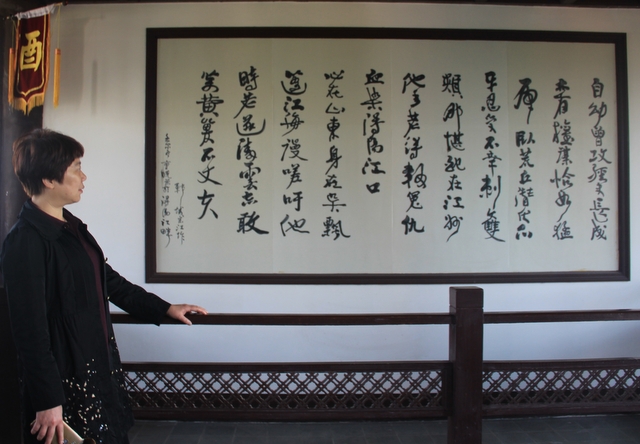 酉
自幼曾攻經史長成
亦有權謀恰如猛
虎臥荒丘潛伏爪
牙忍受不幸刺雙
頰那堪配在江州
他年若得報冤仇
血染潯陽江口
心在山東身在吳飄
蓬江海漫嗟吁他
時若遂凌雲志敢
笑黃巢不丈夫